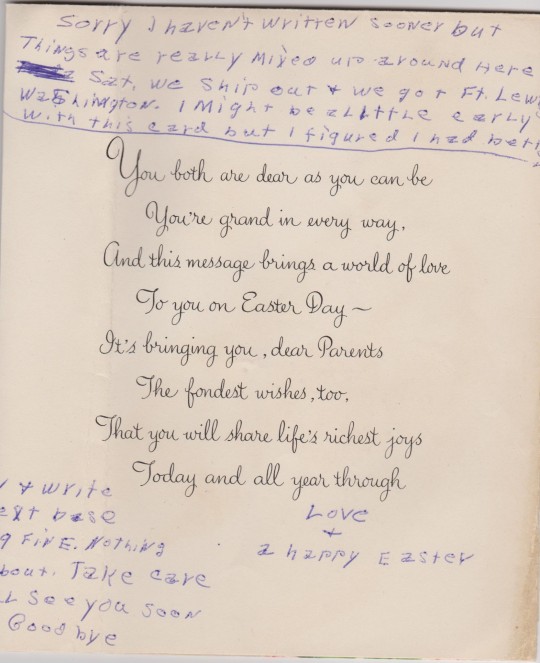 Sorry I haven't written sooner but
Things are really mixed up around Here
Sat. we ship out + we got Ft. Lew
Washington. I might be a little early
with this card but I figured I had bett
You both are dear as you can be
You're grand in every way,
And this message brings a world of love
To you on Easter Day ~
It's bringing you, dear Parents
The fondest wishes, too,
That you will share life's richest joys
Today and all year through
+ write
ext base
g FINE. Nothing
bout. Take care
l see you soon
Goodbye
Love
+
a happy Easter